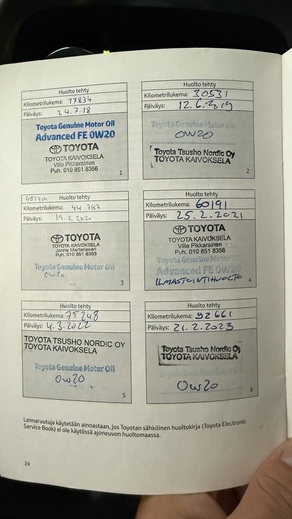 Huolto tehty
Kilometrilukema: 17834
Päiväys: 24.7.18
Toyota Genuine Motor Oil
Advanced FE 0W20
TOYOTA
TOYOTA KAIVOKSELA
Ville Pikkarainen
Puh. 010 851 8356
1
Huolto tehty
Kilometrilukema: 30531
Päiväys: 12.6.2019
Toyota Genuine Motor Oil
0W20
Toyota Tsusho Nordic Oy
TOYOTA KAIVOKSELA
2
Huolto tehty
Kilometrilukema: 44787
Päiväys: 19.2.2020
TOYOTA
TOYOTA KAIVOKSELA
Toyota Genuine Motor Oil
0W20
3
Huolto tehty
Kilometrilukema: 60191
Päiväys: 25.2.2021
TOYOTA
TOYOTA KAIVOKSELA
Ville Pikkarainen
Puh. 010 851 8356
Toyota Genuine Motor Oil
Advanced FE 0W20
ILMASTOINTIHUOLTO
4
Huolto tehty
Kilometrilukema: 75248
Päiväys: 4.3.2022
TOYOTA TSUSHO NORDIC OY
TOYOTA KAIVOKSELA
Toyota Genuine Motor Oil
0W20
5
Huolto tehty
Kilometrilukema: 92661
Päiväys: 21.2.2023
Toyota Tsusho Nordic Oy
TOYOTA KAIVOKSELA
0W20
6
Leimaruutuja käytetään ainoastaan, jos Toyotan sähköinen huoltokirja (Toyota Electronic
Service Book) ei ole käytössä ajoneuvon huoltomaassa.
24